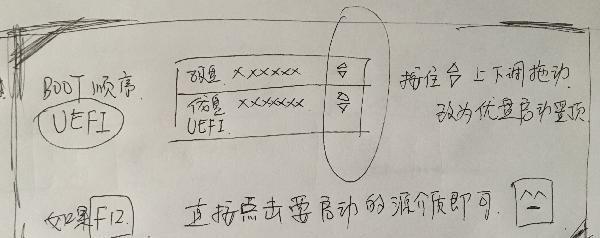 BOOT 顺序.
UEFI
硬盘 xxxxxx
优盘 xxxxxxx
UEFI.
按住 上下调拖动.
改为优盘启动置顶
如果F12.
直接点击要启动的源介质即可.